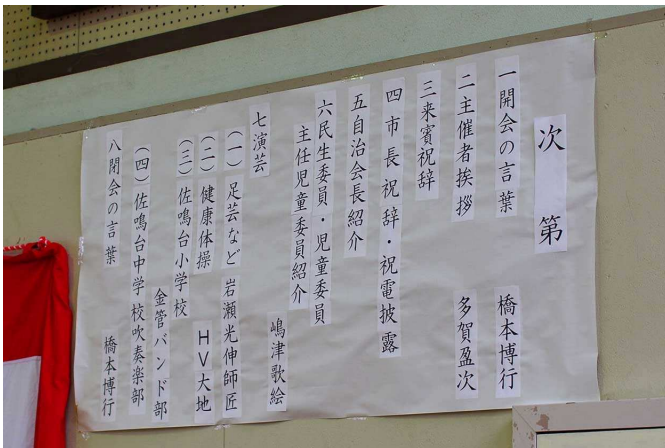 次第
一開会の言葉 橋本博行
二主催者挨拶 多賀盈次
三来賓祝辞
四市長祝辞・祝電披露
五自治会長紹介
六民生委員・児童委員
主任児童委員紹介
七演芸 嶋津歌絵
(一)足芸など 岩瀬光伸師匠
(二)健康体操 HV大地
(三)佐鳴台小学校
金管バンド部
(四)佐鳴台中学校吹奏楽部
八閉会の言葉 橋本博行